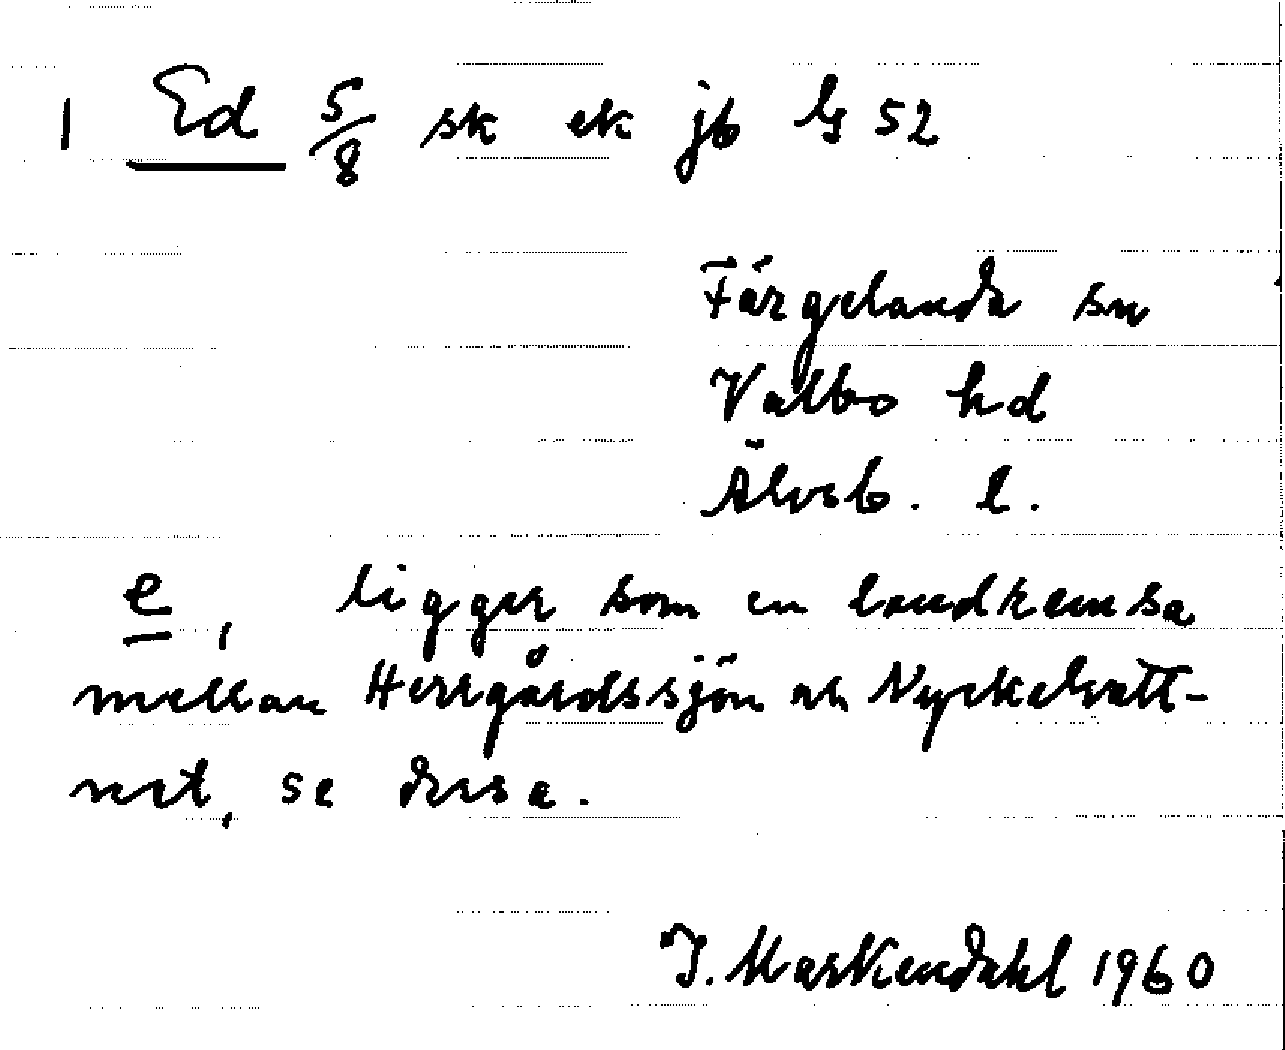 1 Ed 5/8 sk ek jb G 52
Färgelanda sn
Valbo hd
Älvsb. l.
e, ligger som en landremsa
mellan Herrgårdssjön och Nyckelvatt-
net, se dessa.
J. Markendahl 1960